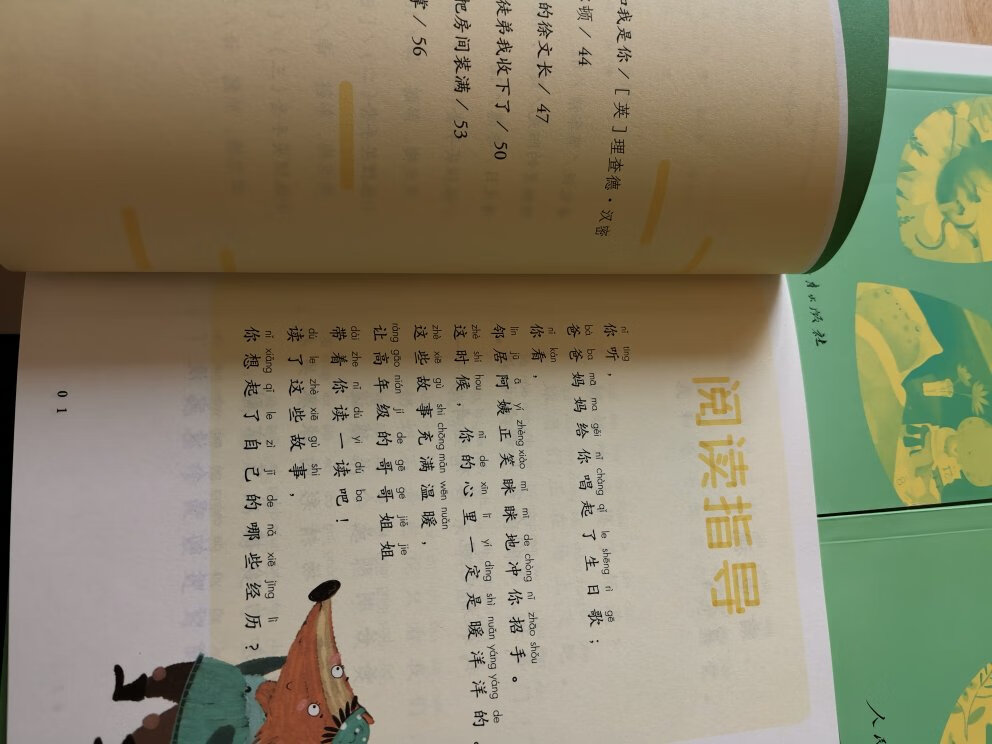 和我是你/［英］理查德·汉密
顿/44
的徐文长/47
徒弟我收下了/50
把房间装满/53
/56
阅读指导
nǐ tīng
你听，
bà ba mā ma gěi nǐ chàng qǐ le shēng rì gē
爸爸妈妈给你唱起了生日歌；
nǐ kàn
你看，
lín jū ā yí zhèng xiào mī mī de chòng nǐ zhāo shǒu
邻居阿姨正笑眯眯地冲你招手。
zhè shí hou nǐ de xīn lǐ yí dìng shì nuǎn yáng yáng de
这时候，你的心里一定是暖洋洋的。
zhè xiē gù shi chōng mǎn wēn nuǎn
这些故事充满温暖，
ràng gāo nián jí de gē ge jiě jie
让高年级的哥哥姐姐
dài zhe nǐ dú yi dú ba
带着你读一读吧！
dú le zhè xiē gù shi
读了这些故事，
nǐ xiǎng qǐ le zì jǐ de nǎ xiē jīng lì
你想起了自己的哪些经历？
01
出版社
人民